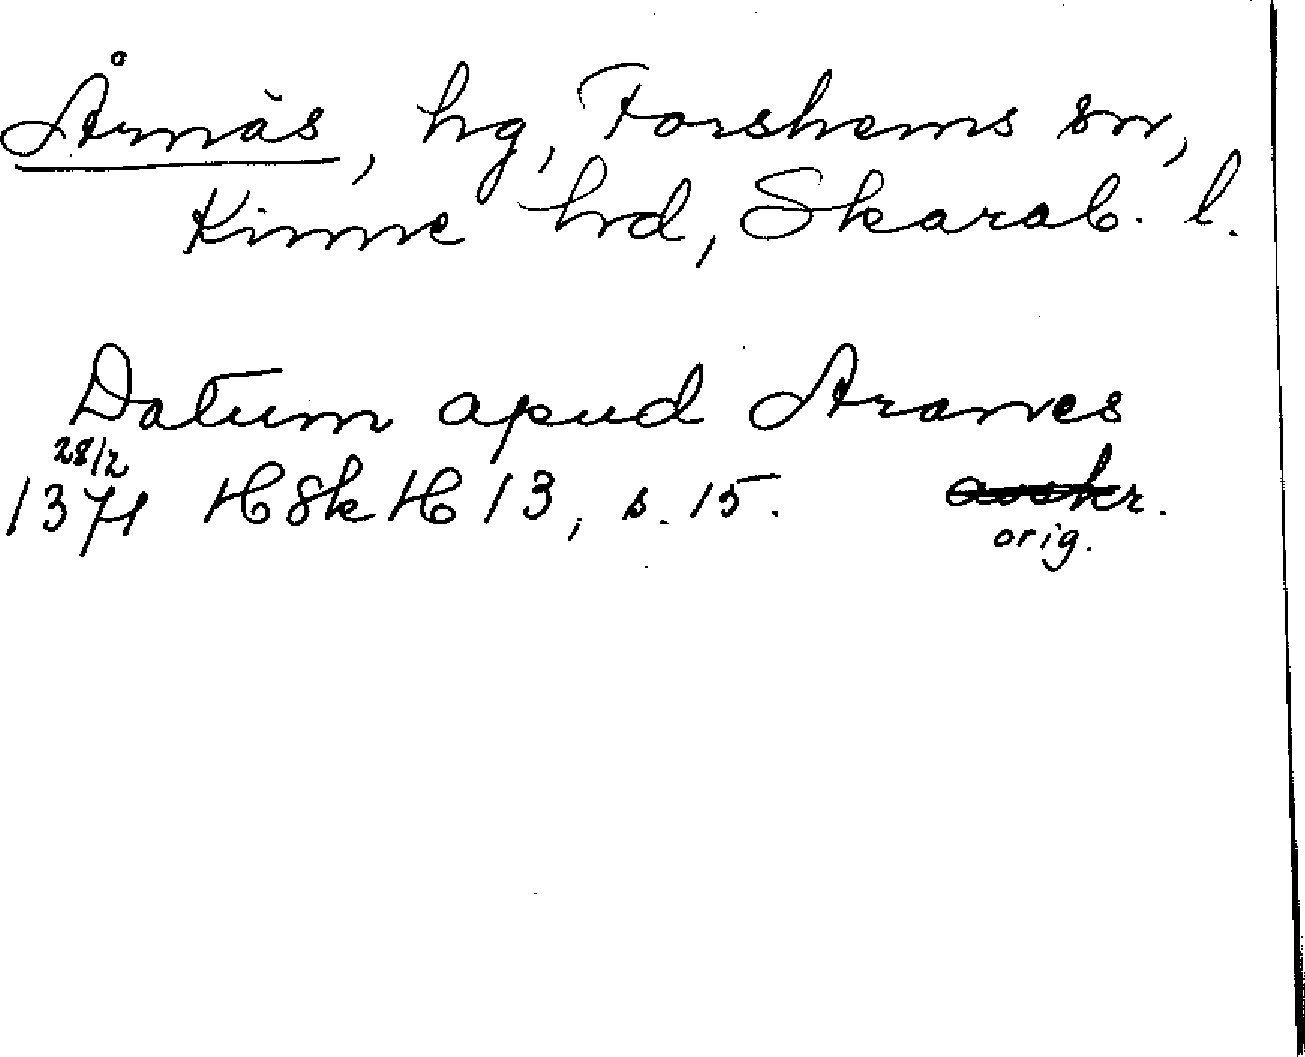 Årnäs, hg, Forshems sn,
Kinne hd, Skarab. l.
Datum apud Aranes
28/2
1371 HSkH 13, s. 15.
orig.